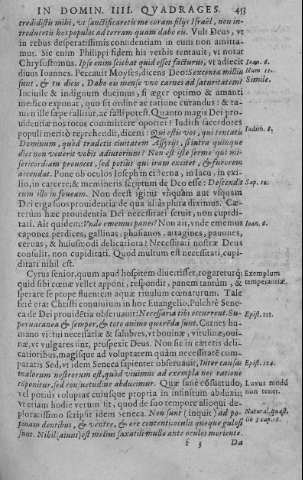 IN DOMIN. IIII. QUADRAGES. 
tredidistis mihi, ut sanctificaretis me coram filijs Israel, non in-
troducetis hos populos ad terram quam dabo eis. Vult Deus, ut
in rebus desperatissimis confidentiam in eum non amitta-
mus. Sic enim Philippi fidem his verbis tentauit, ut notat
Chrysostomus. Ipse enim sciebat quid esset facturus, ut adiecit
diuus Ioannes. Peccauit Moyses, dicens Deo: Sexcenta millia
sunt, & tu dicis, Dabo eis mense uno carnes ad saturitatem?
Inciuile & indignum ducimus, si æger optimo & amanti
medico exponat, quo sit ordine ac ratione curandus: & ta-
men ille sæpe fallitur, ac falli potest. Quanto magis Dei pro-
uidentiæ nos totos committere oportet? Iudith sacerdotes
populi merito reprehendit, dicens: Qui estis vos, qui tentatis
Dominum, quod tradetis ciuitatem Assyrijs, si intra quinque
dies non venerit vobis adiutorium? Non est iste sermo qui mi-
sericordiam prouocet, sed potius qui iram excitet, & furorem
accendat. Pone ob oculos Ioseph in cisterna, in lacu, in exi-
lio, in carcere, & memineris scriptum de Deo esse: Descendit
cum illo in foueam. Non deest igitur vnquam aut vsquam
Dei ergo suos prouidentia de qua aliàs plura diximus. Cæ-
terùm hæc prouidentia Dei necessitati seruit, non cupidi-
tati. Ait quidem: Vnde ememus panes? Non ait, vnde ememus
capones, perdices, gallinas, phasianos, attagines, pauones,
ceruas, & huiusmodi delicatiora? Necessitati nostræ Deus
consulit, non cupiditati. Quod multum est necessitati, cupi-
ditati nihil est.
Cyrus senior, quum apud hospitem diuertisset, rogaretur
quid sibi cœnæ vellet apponi, respondit, panem tantùm, &
sperate se prope fluentem aquæ riuulum cœnaturum. Tale
fert erat Christi conuiuium in hoc Euangelio. Pulchrè Sene-
ca de Dei prouidentia obseruauit: Necessaria tibi occurrent. Su-
peruacanea & semper, & toto animo quærenda sunt. Carnes hu-
mano victui necessariæ & salubres, vt bouinæ, vitulinæ, ouil-
læ, vt vulgares sint, prospexit Deus. Non sic in cæteris deli-
catioribus, magisque ad voluptatem quàm necessitatē com-
paratis. Sed, vt idem Seneca sapienter obseruauit, Inter causas
malorum nostrorum est, quòd viuimus ad exempla: nec ratione
componitur, sed consuetudine abducimur. Quæ sanè consuetudo,
vel potiùs voluptas cuiusque propria in infinitum abduxit.
Vetiam hodie verum sit, quod de suo tempore alioqui de-
plorassimo scripsit idem Seneca. Non sunt (inquit) ad po-
panum dentibus, & ventre, & ore contenti oculis quoque gulosi
sunt. Nihil (aiunt) est melius saxatili mullo ante oculos moriente.
f 3 Da
Ioan. 6.
Num. 11.
Simile.
Iudith. 8.
Sap. 10.
Ioan. 6.
Exemplum
temperantiæ.
Epist. 123.
Luxus modū
non tenet.